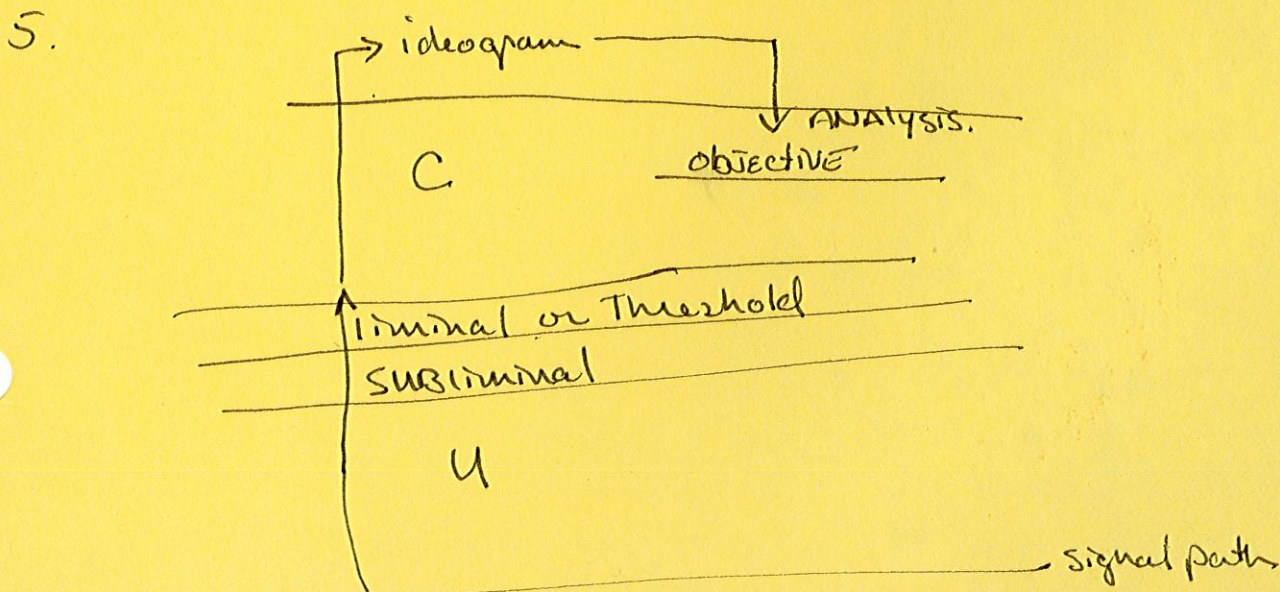 5.
ideogram
ANALYSIS.
C
OBJECTIVE
liminal or Threshold
SUBliminal
U
signal path